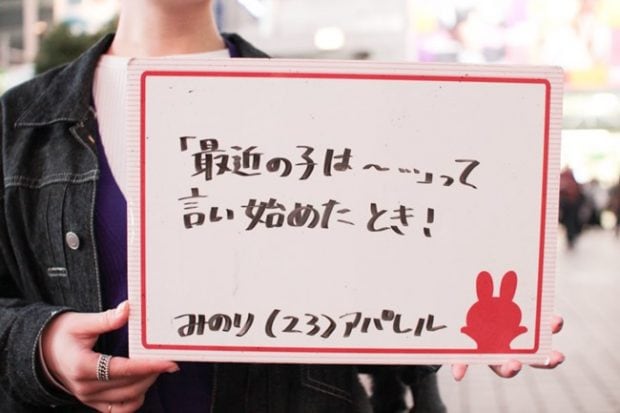 「最近の子は～…」って
言い始めたとき！
みのり(23)アパレル